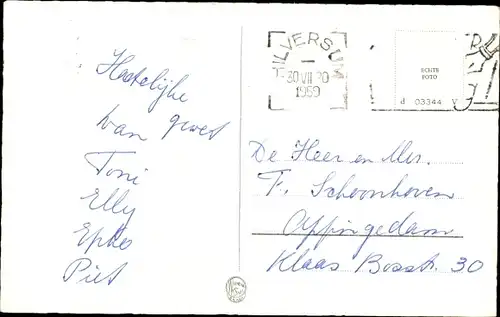 Hartelijke
van groet
Toni
Elly
Epko
Piet
HILVERSUM
30 VII 20
1959
ECHTE
FOTO
d 03344 A
De Heer en Mevr.
F. Schoonhoven
Appingedam
Klaas Bosstr. 30